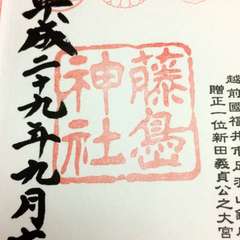 越前國福井市足羽山鎮座
贈正一位新田義貞公之大宮
藤島
神社
平成二十九年九月